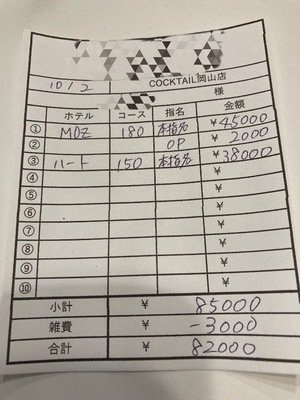 10/2 COCKTAIL岡山店
様
ホテル コース 指名 金額
① MDZ 180 本指名 ¥45000
② OP ¥2000
③ ハート 150 本指名 ¥38000
④ ¥
⑤ ¥
⑥ ¥
⑦ ¥
⑧ ¥
⑨ ¥
⑩ ¥
小計 ¥ 85000
雑費 ¥ -3000
合計 ¥ 82000